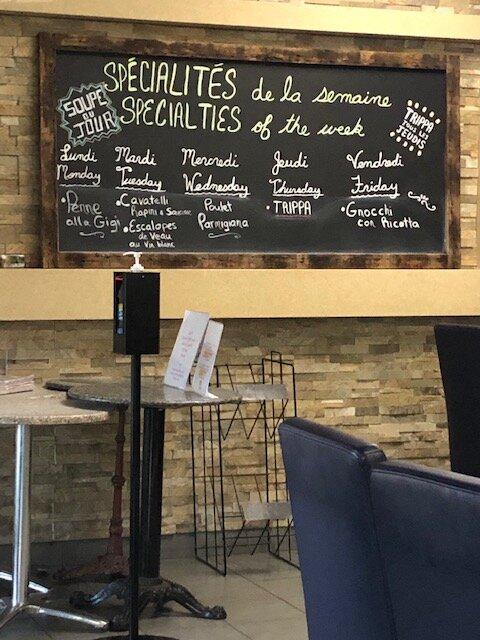 SPÉCIALITÉS de la semaine
SPECIALTIES of the week
SOUPE
DU
JOUR
TRIPPA
TOUS LES
JEUDIS
Lundi
Monday
• Penne
alla Gigi
Mardi
Tuesday
• Cavatelli
Rapini e Saucisse
• Escalopes
de Veau
au Vin blanc
Mercredi
Wednesday
Poulet
Parmigiana
Jeudi
Thursday
• TRIPPA
Vendredi
Friday
• Gnocchi
con Ricotta